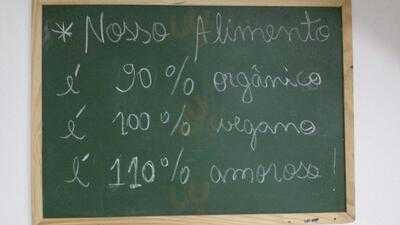 * Nosso Alimento
é 90% orgânico
é 100% vegano
é 110% amoroso!